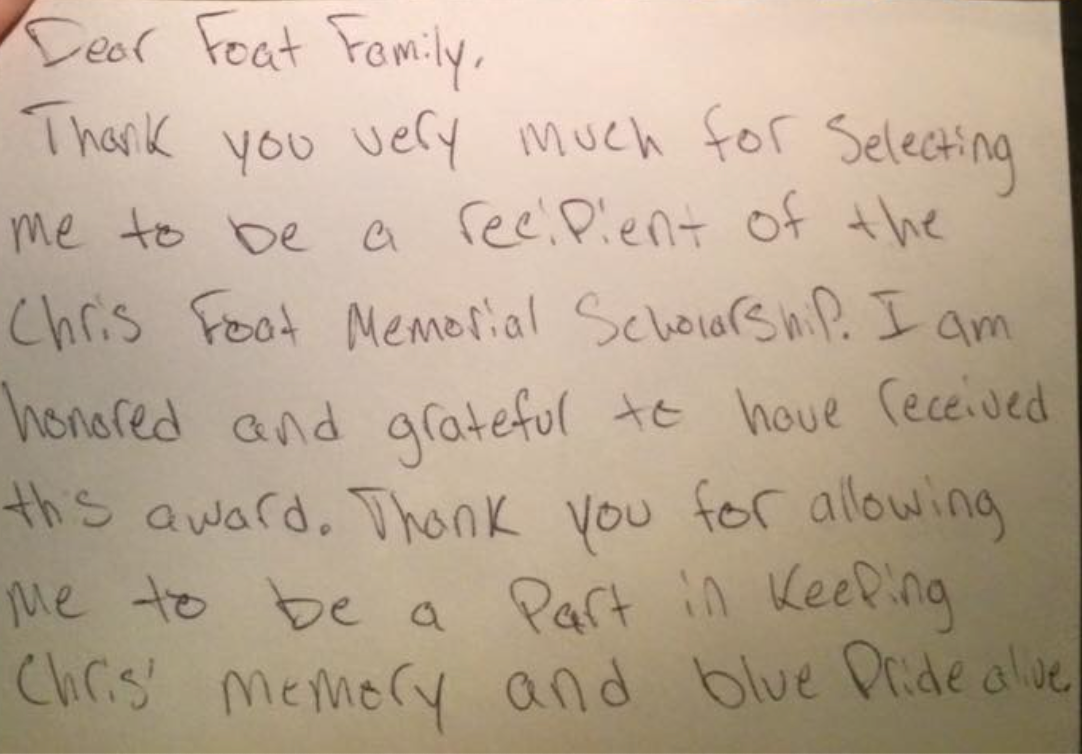 Dear Foat Family,
Thank you very much for Selecting
me to be a recipient of the
Chris Foat Memorial Scholarship. I am
honored and grateful to have received
this award. Thank you for allowing
Me to be a Part in Keeping
Chris' memory and blue Pride alive.